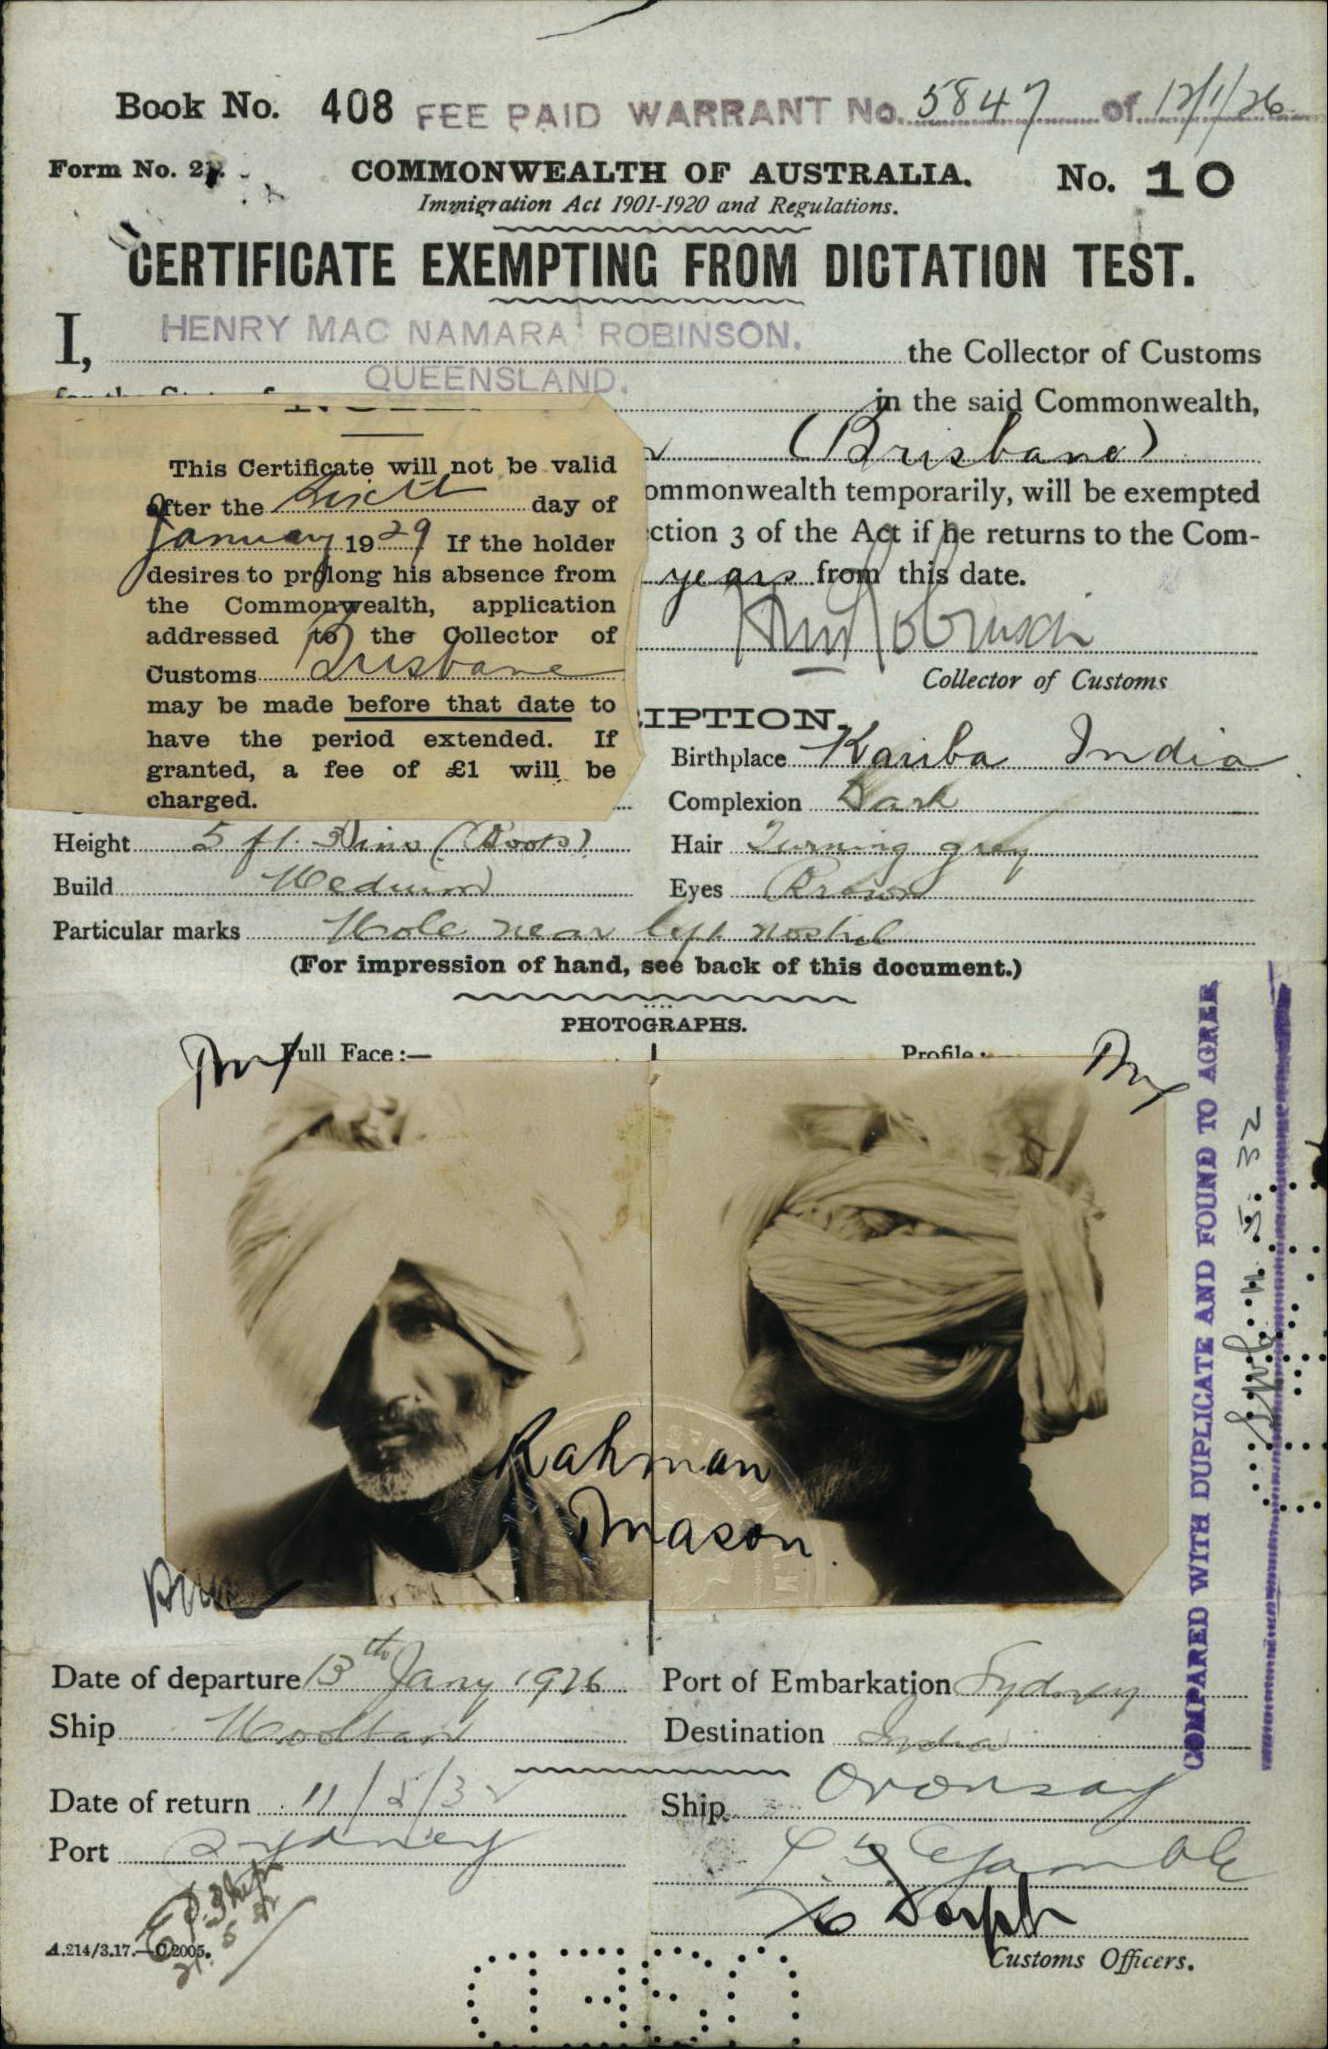 Book No. 408 FEE PAID WARRANT No. 5847 of 12/1/26
Form No. 21.
COMMONWEALTH OF AUSTRALIA. No. 10
Immigration Act 1901-1920 and Regulations.
CERTIFICATE EXEMPTING FROM DICTATION TEST.
I, HENRY MAC NAMARA ROBINSON, the Collector of Customs
QUEENSLAND. in the said Commonwealth,
(Brisbane)
ommonwealth temporarily, will be exempted
ction 3 of the Act if he returns to the Com-
years from this date.
Collector of Customs
This Certificate will not be valid
after the sixth day of
January 1929 If the holder
desires to prolong his absence from
the Commonwealth, application
addressed to the Collector of
Customs Brisbane
may be made before that date to
have the period extended. If
granted, a fee of £1 will be
charged.
IPTION.
Birthplace Kariba India
Complexion Dark
Height 5 ft. 3½ins (Boots) Hair Turning grey
Build Medium Eyes Brown
Particular marks Mole near left nostril
(For impression of hand, see back of this document.)
PHOTOGRAPHS.
Full Face :— Profile :—
Rahman
Mason
COMPARED WITH DUPLICATE AND FOUND TO AGREE
11. 5. 32
Date of departure 13th Jany 1926 Port of Embarkation Sydney
Ship Mooltan Destination India
Date of return 11/5/32 Ship Oronsay
Port Sydney
Gamble
Customs Officers.
A.214/3.17.—C.2005.